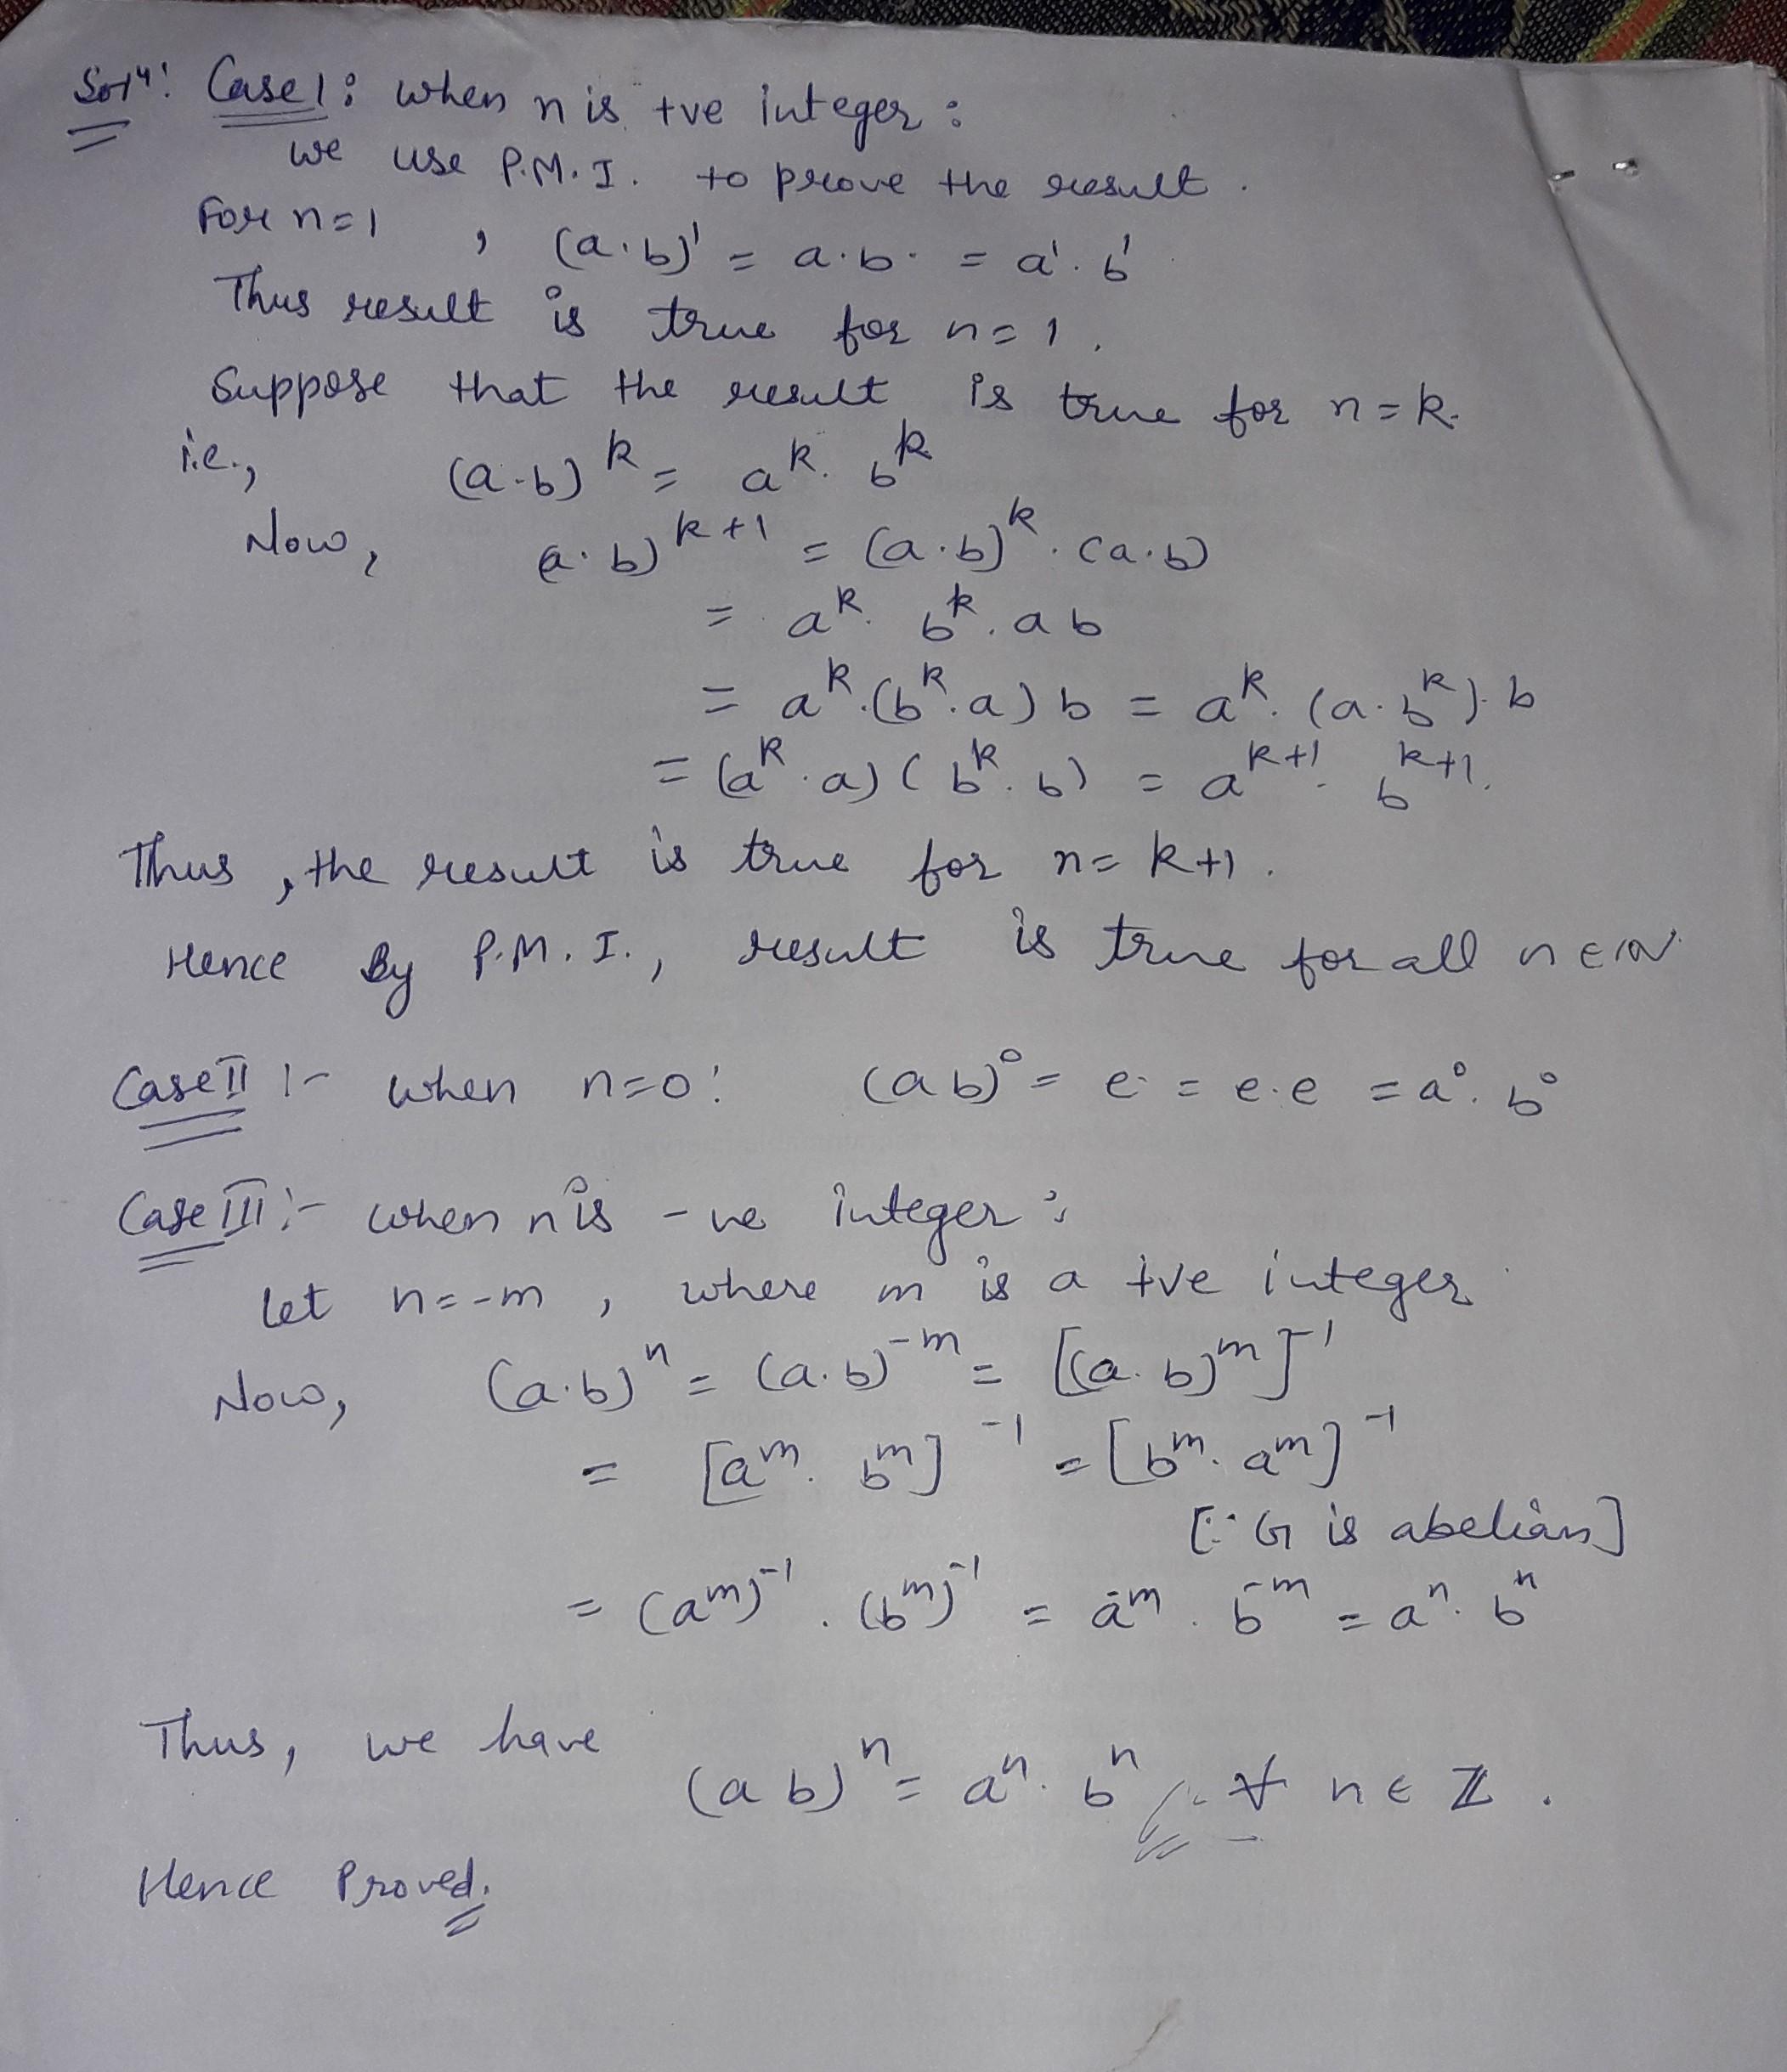 Solⁿ: Case 1: when n is +ve integer:
we use P.M.I. to prove the result.
For n=1, (a.b)¹ = a.b. = a¹.b¹
Thus result is true for n=1.
Suppose that the result is true for n=k.
i.e., (a.b)ᵏ = aᵏ.bᵏ
Now, (a.b)ᵏ⁺¹ = (a.b)ᵏ.(a.b)
= aᵏ.bᵏ.ab
= aᵏ.(bᵏ.a)b = aᵏ.(a.bᵏ).b
= (aᵏ.a)(bᵏ.b) = aᵏ⁺¹.bᵏ⁺¹.
Thus, the result is true for n=k+1.
Hence By P.M.I., result is true for all n∈ℕ
Case II :- when n=0: (ab)⁰ = e = e.e = a⁰.b⁰
Case III :- when n is -ve integer:
let n=-m, where m is a +ve integer
Now, (a.b)ⁿ = (a.b)⁻ᵐ = [(a.b)ᵐ]⁻¹
= [aᵐ.bᵐ]⁻¹ = [bᵐ.aᵐ]⁻¹
[∵ G is abelian]
= (aᵐ)⁻¹.(bᵐ)⁻¹ = a⁻ᵐ.b⁻ᵐ = aⁿ.bⁿ
Thus, we have
(ab)ⁿ = aⁿ.bⁿ, ∀ n∈ℤ.
Hence Proved.